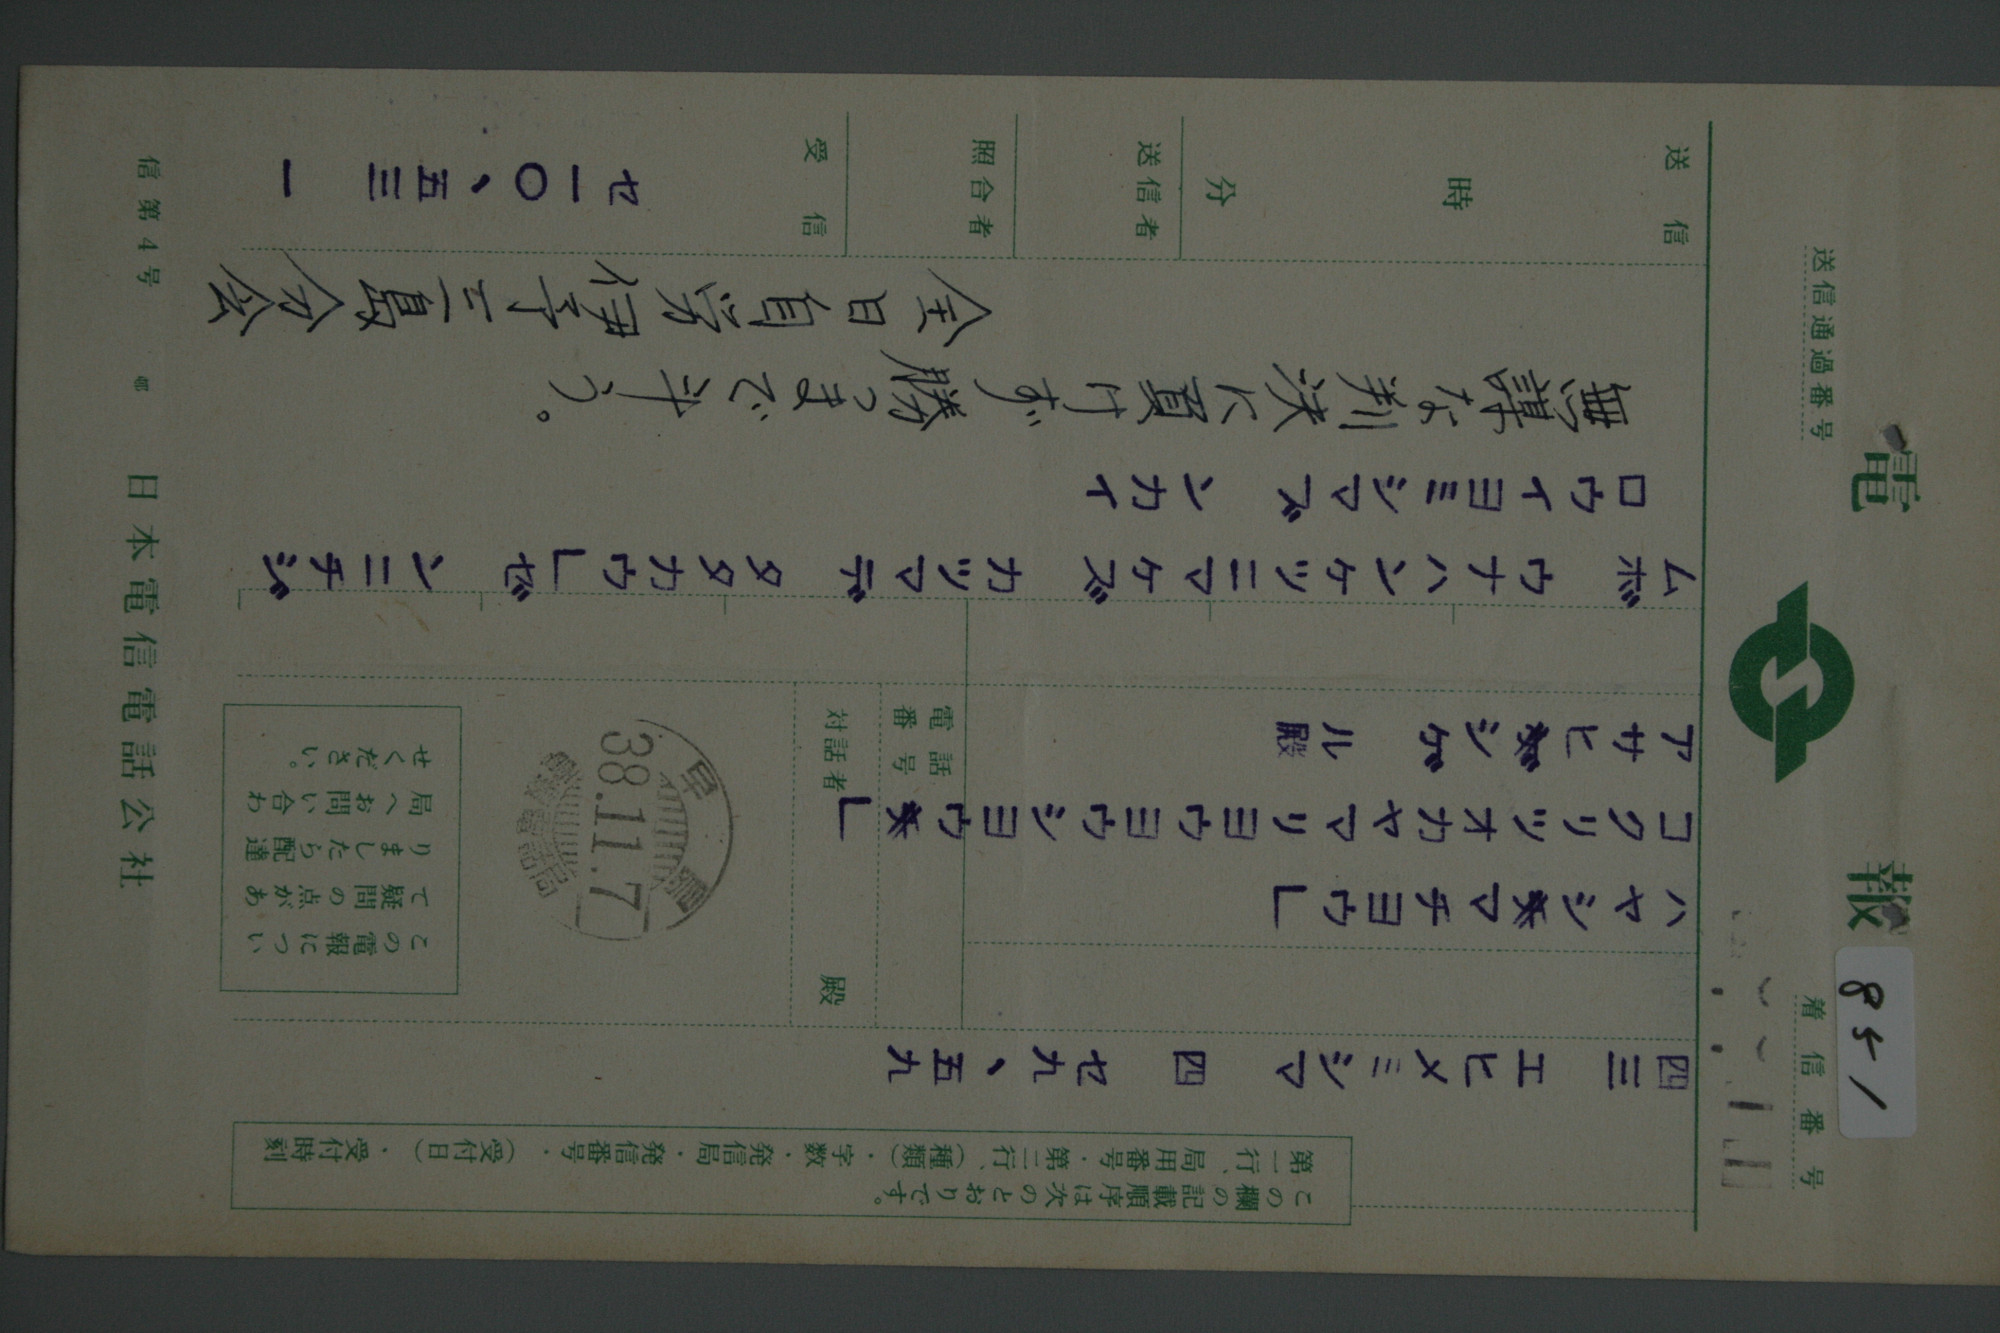 電報
851
着信番号
送信通過番号
この欄の記載順序は次のとおりです。
第一行、局用番号・第二行、(種類)・字数・発信局・発信番号・(受付日)・受付時刻
四三 エヒメミシマ 四 セ九、五九
ハヤシマチヨウ」
コクリツオカヤマリヨウヨウシヨウ」
アサヒシゲル殿
電話番号
対話者 殿
早島
38.11.7
この電報につい
て疑問の点があ
りましたら配達
局へお問い合わ
せください。
ムボ ウナハンケツニマケズ カツマデ タタカウ」ゼ ンニチジ
ロウイヨミシマブ ンカイ
無謀な判決に負けず勝つまで斗う。
全日自労伊予三島分会
送信 時 分
送信者
照合者
受信
セ一〇、五三 一
信第4号
日本電信電話公社